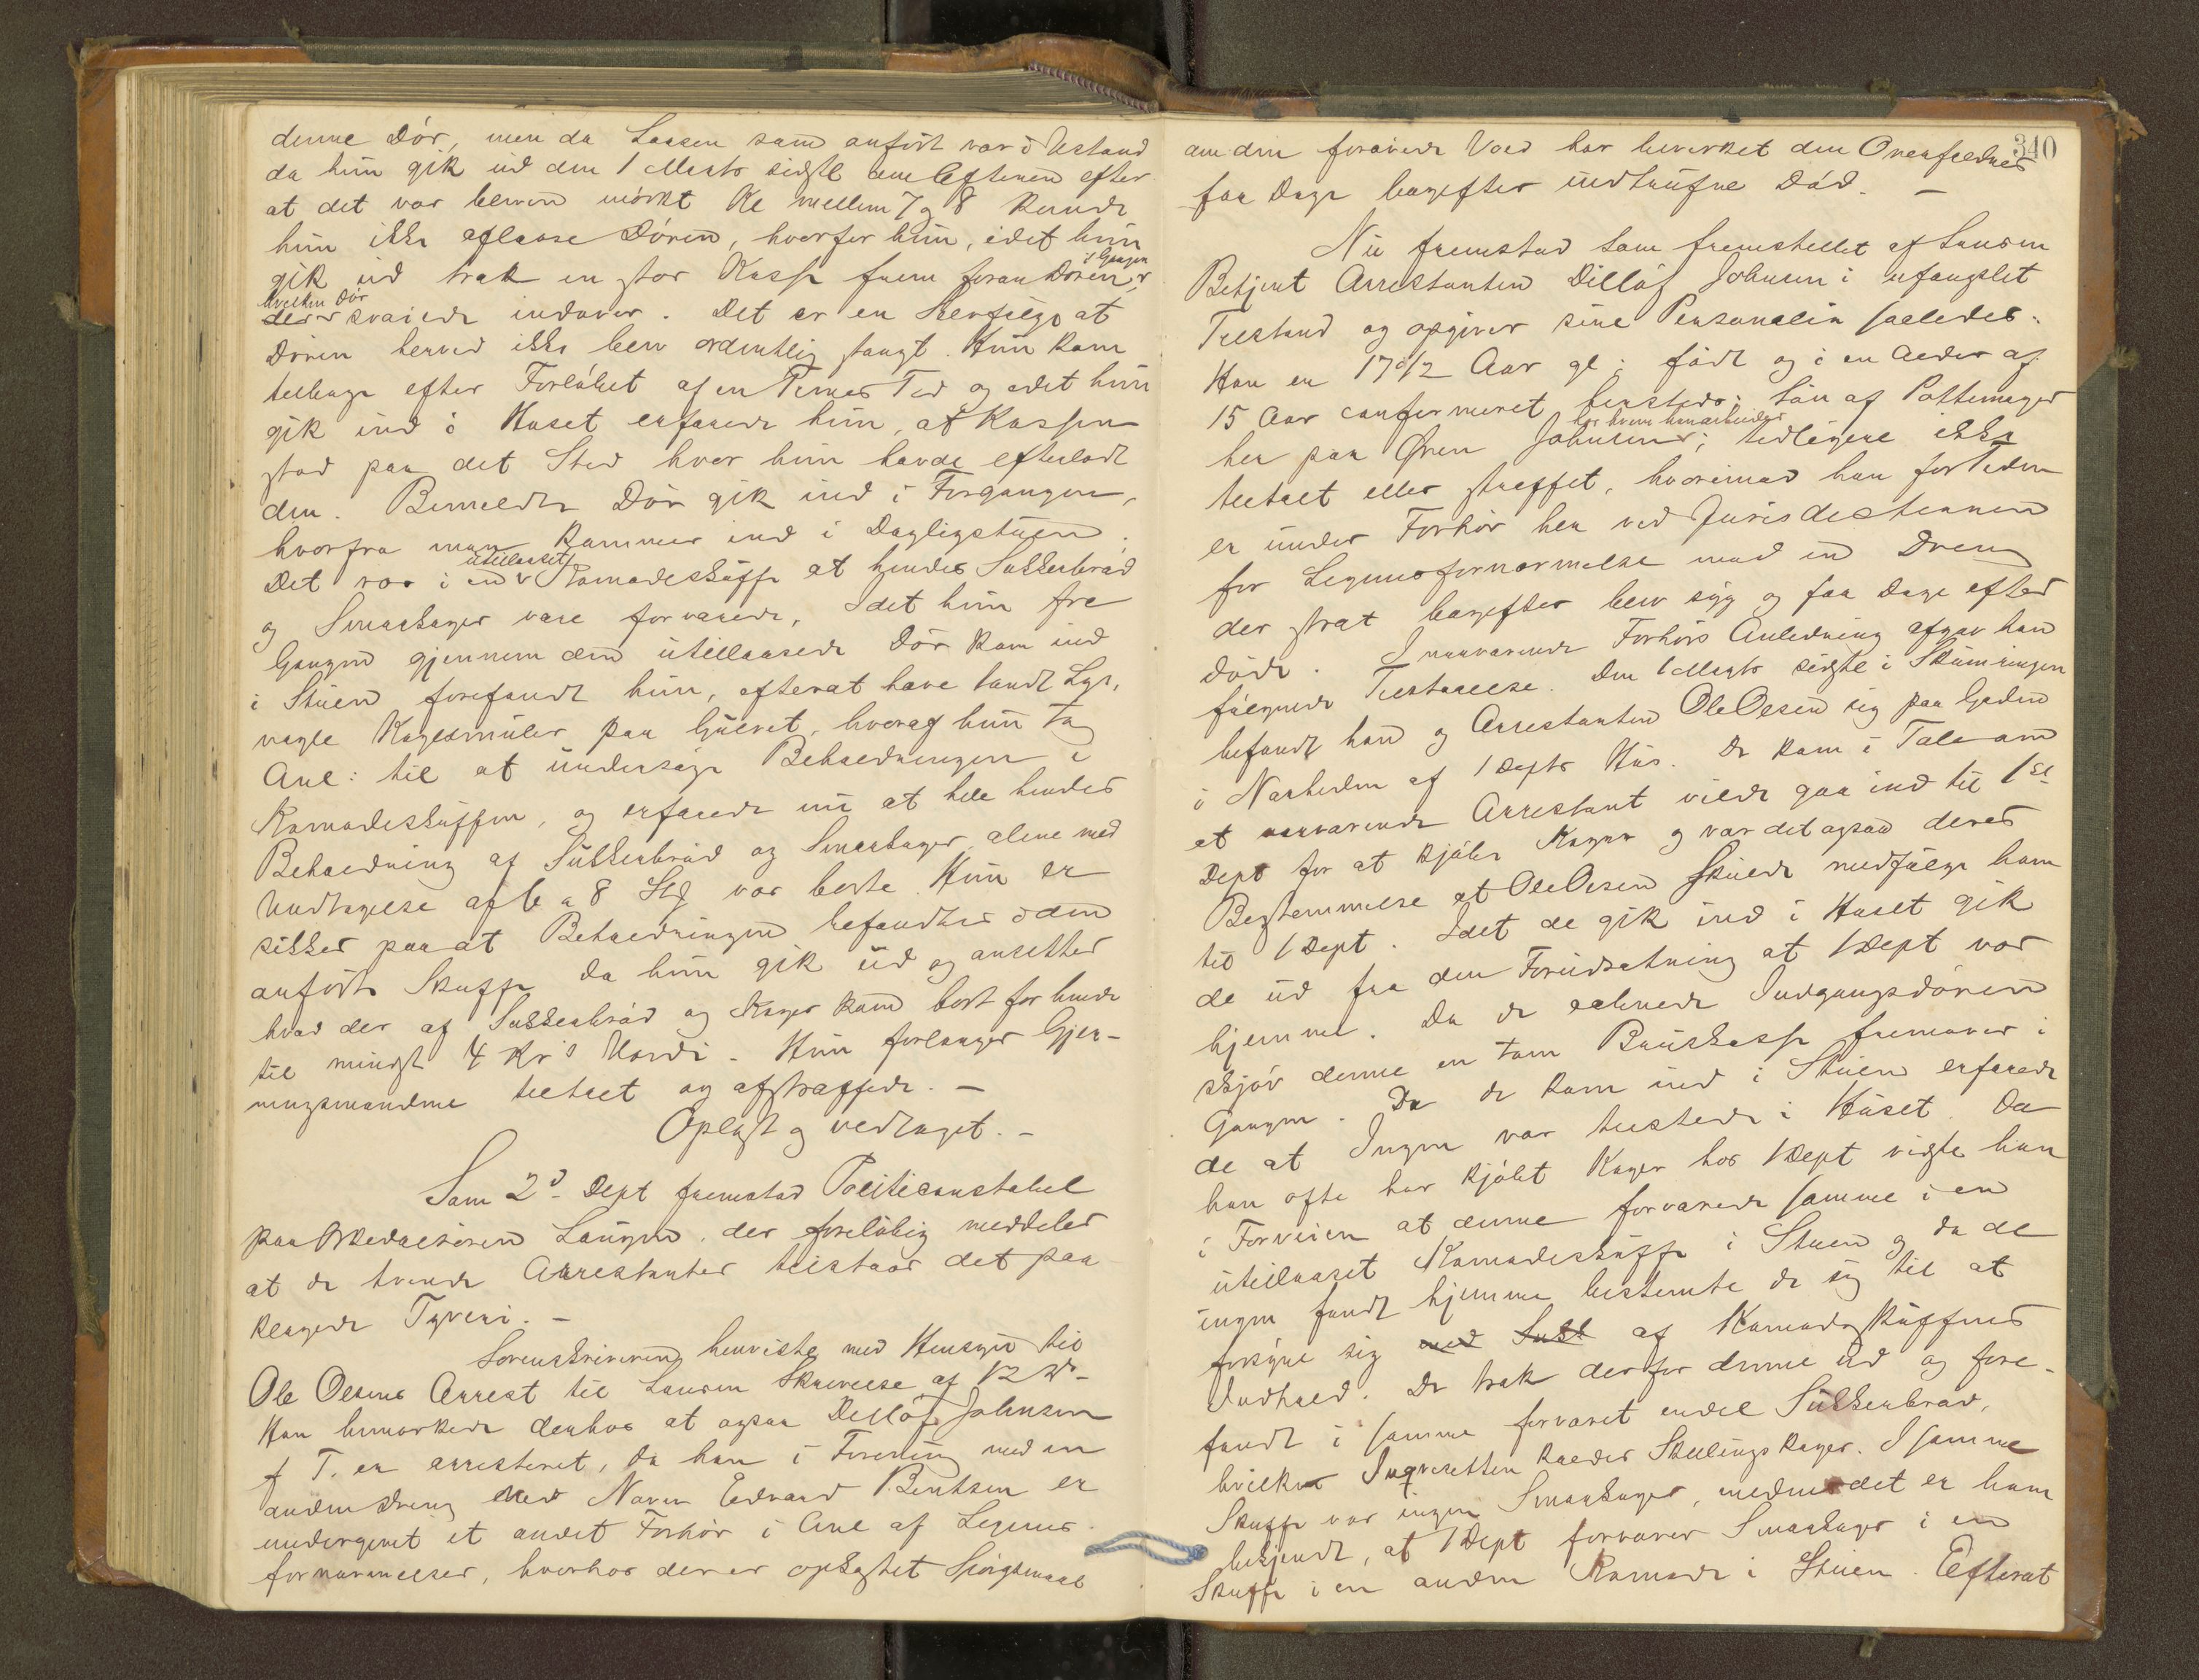 denne Dör, men da Laasen som anfört var i Ustand
da hun gik ud den 1 Marts sidstl om Eftenen efter
at det var bleven mörkt Kl mellem 7 og 8 kunde
hun ikke aflaase Dören, hvorfor hun, idet hun
gik ud trak en stor Kasse frem foran Dören i Gangen,
hvilken Dör svaiede indover. Det er en Selvfölge at
Dören herved ikke blev ordentlig stængt. Hun kom
tilbage efter Forlöbet af en Times Tid og idet hun
gik ind i Huset erfarede hun, at Kassen
stod paa det Sted hvor hun havde efterladt
den. Bemeldte Dör gik ind i Forgangen,
hvorfra man kommer ind i Dagligstuen.
Det var i en utillaaset Komodeskuffe at hendes Sukkerbröd
og Smaakager vare forvarede, Idet hun fra
Gangen gjennem den utillaasede Dör kom ind
i Stuen forefandt hun, efterat have tændt Lys,
nogle Kagesmuler paa Gulvet, hvoraf hun tog
Anl: til at undersöge Beholdningen i
Komodeskuffen, og erfarede nu at hele hendes
Beholdning af Sukkerbröd og Smaakager alene med
Undtagelse af 6 a 8 Stk var borte. Hun er
sikker paa at Beholdningen befandtes i den
anförte Skuffe da hun gik ud og ansetter
hvad der af Sukkerbröd og Kager kom bort for hende
til mindst 4 Kr's Værdi. Hun forlanger Gjer-
ningsmændene tiltalt og afstraffede. -
Oplæst og vedtaget. -
Som 2d Dept fremstod Politiconstabel
paa Langen, der foreløbig meddeler
at de tvende Arrestanter tilstaar det paa
klagede Tyveri. -
Sorenskriveren henviste med Hensyn til
Ole Olsens Arrest til Lensm Skrivelse af 12 ds.
Han bemærkede derhos at ogsaa Detlöf Johnsen
f T. er arresteret, da han i Forening med en
anden Dreng ved Navn Edvard Bentsen er
undergivet et andet Forhör i Anl af Legems-
fornærmelser, hvorhos der er opkastet Spörgsmaal
340
om den forövede Vold har bevirket den Overfaldnes
faa Dage bagefter indtrufne Död. -
Nu fremstod som fremstillet af Lensm
Betjent Arrestanten Dillöf Johnsen i ufængslet
Tilstand og opgiver sine Personalia saaledes.
Han er 17 1/2 Aar gl; född og i en Alder af
15 Aar confirmeret hersteds; Sön af Pottemager
her paa Ören Johnsen, hos hvem han arbeider; tidligere ikke
tiltalt eller straffet, hvorimod han for Tiden
er under Forhör her ved Jurisdictionen
for Legemsfornærmelse mod en Dreng
der strax bagefter blev syg og faa Dage efter
döde. I nærværende Forhörs Anledning afgav han
fölgende Tilstaaelse. Den 1 Marts sidstl i Skumringen
befandt han og Arrestanten Ole Olsen sig paa Gaden
i Nærheden af 1 Depts Hus. De kom i Tale om
at nærværende Arrestant vilde gaa ind til 1ste
Dept for at kjöbe Kager og var det ogsaa deres
Bestemmelse at Ole Olsen skulde medfölge ham
til 1 Dept. Idet de gik ind i Huset gik
de ud fra den Forudsætning at 1 Dept var
hjemme. Da de aabnede Indgangsdören
skjöv denne en tom Kasse fremover i
Gangen. Da de kom ind i Stuen erfarede
de at Ingen var tilstede i Huset. Da
han ofte har kjöbt Kager hos 1 Dept vidste han
i Forveien at denne forvarede samme i en
utillaaset Komodeskuffe i Stuen og da de
ingen fandt hjemme bestemte de sig til at
forsyne sig med Sukk af Komodeskuffens
Indhold. De trak derfor denne ud og fore-
fandt i samme forvaret endel Sukkerbröd,
hvilke Inqvisitten kalder Skillingskager. I samme
Skuffe var ingen Smaakager, medens det er ham
bekjendt, at 1 Dept forvarer Smaakager i en
Skuffe i en anden Komode i Stuen. Efterat